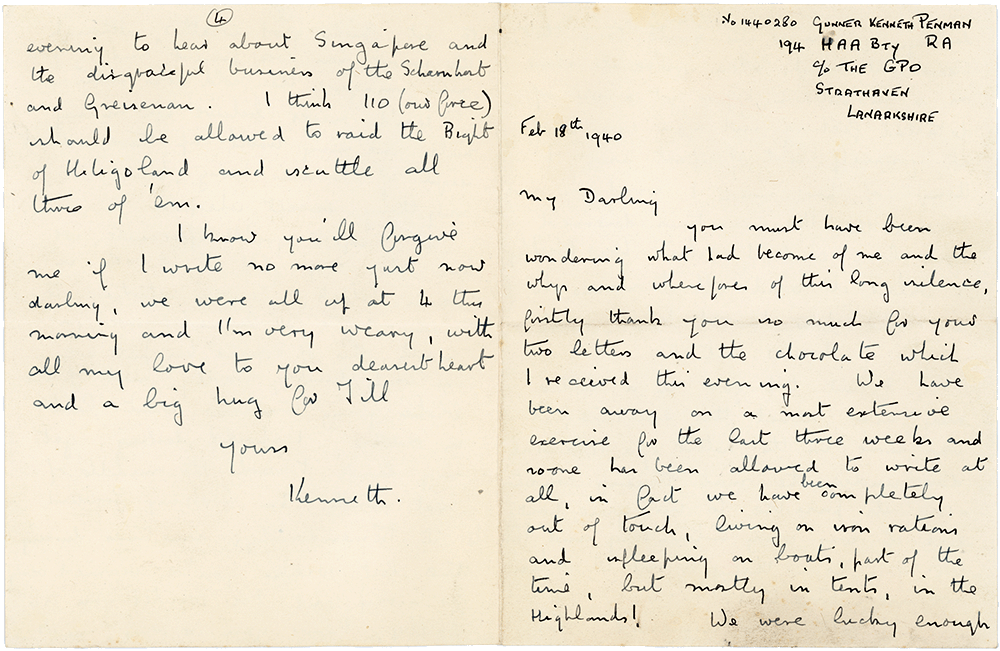 4
evening to hear about Singapore and
the disgraceful business of the Scharnhorst
and Greisenau. I think 110 (our force)
should be allowed to raid the Bight
of Heligoland and scuttle all
three of 'em.
I know you'll forgive
me if I write no more just now
darling, we were all up at 4 this
morning and I'm very weary, with
all my love to you dearest heart
and a big hug for Jill
Yours
Kenneth.
No 1440280 GUNNER KENNETH PENMAN
194 HAA BTY RA
c/o THE GPO
STRATHAVEN
LANARKSHIRE
Feb 18th, 1940
My Darling
you must have been
wondering what had become of me and the
whys and wherefores of this long silence,
firstly thank you so much for your
two letters and the chocolate which
I received this evening. We have
been away on a most extensive
exercise for the last three weeks and
noone has been allowed to write at
all, in fact we have been completely
out of touch, living on iron rations
and sleeping on boats, part of the
time, but mostly in tents, in the
Highlands! We were lucky enough